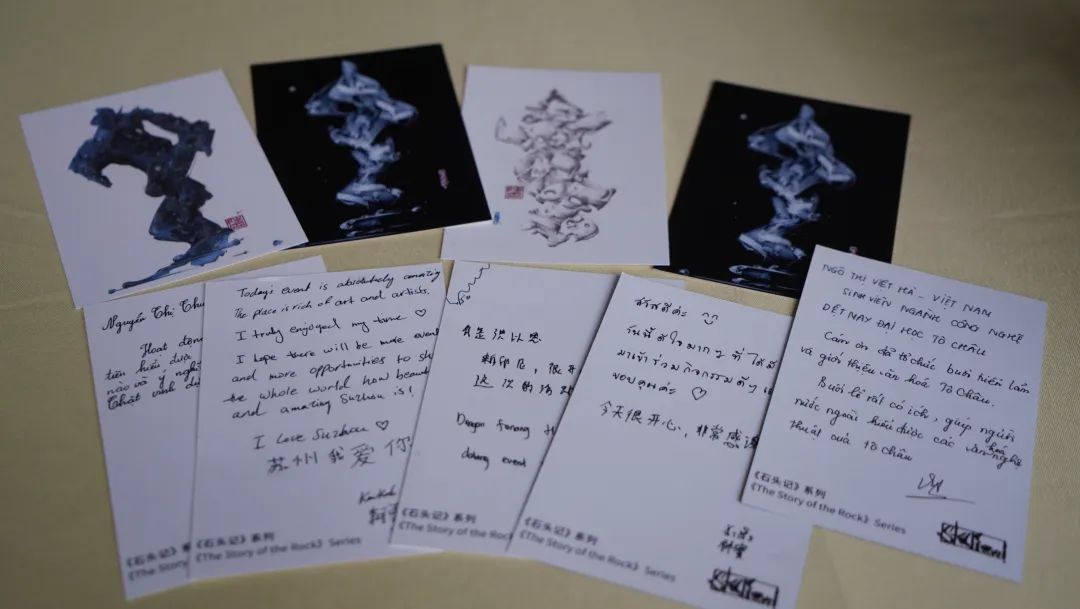 Nguyễn Thị Thu
Hoạt động
tìm hiểu được
nào và ý nghĩ
Thật vinh dự
《石头记》系列
《The Story
Today's event is absolutely amazing
The place is rich of art and artists.
I truly enjoyed my time ♡
I hope there will be more event
and more opportunities to sh
the whole world how beaut
and amazing Suzhou is!
I love Suzhou ♡
苏州我爱你
《石头记》系列
《The Story of the Rock》 Series
我是洪以恩
很开
这次的活动
Dengan senang
datang event
《石头记》系列
《The Story of the Rock
สวัสดีค่ะ
วันนี้ดีใจมากๆ ที่ได้มี
มาเข้าร่วมกิจกรรมดีๆ
ขอบคุณค่ะ ♡
今天很开心，非常感谢
《石头记》系列
《The Story of the Rock》 Series
NGÔ THỊ VIỆT HÀ - VIỆT NAM
SINH VIÊN NGÀNH CÔNG NGHỆ
DỆT MAY ĐẠI HỌC TÔ CHÂU
Cảm ơn đã tổ chức buổi triển lãm
và giới thiệu văn hoá Tô Châu.
Buổi lễ rất có ích, giúp người
nước ngoài hiểu được các văn hoá nghệ
thuật của Tô Châu
《石头记》系列
《The Story of the Rock》 Series